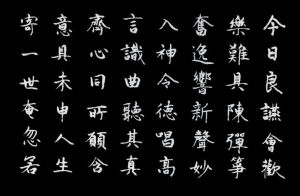 今日良讌會歡
樂難具陳彈箏
奮逸響新聲妙
入神令德唱高
言識曲聽其真
齊心同所願含
意具未申人生
寄一世奄忽若